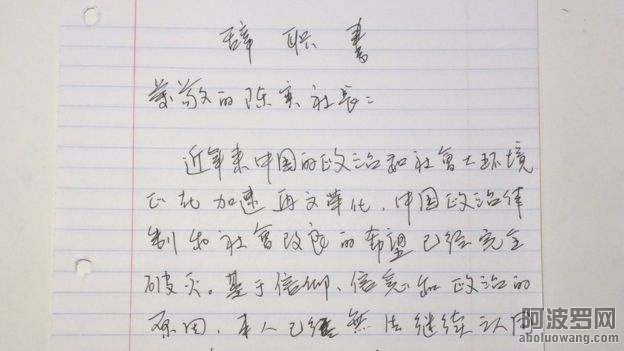 辞职書
尊敬的陈実社長:
近年来中国的政治和社會大环境
正在加速再文革化,中国政治体
制和社會改良的希望已经完全
破灭。基于信仰、信念和政治的
原因,本人已經無法继续认同
阿波罗网
aboluowang.com